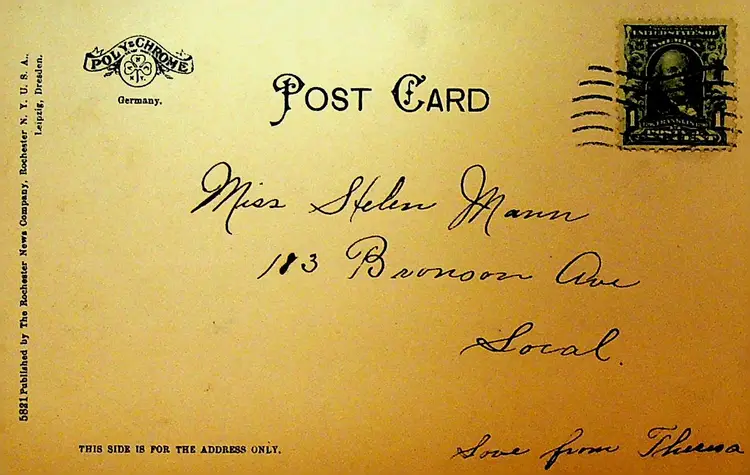 POLY-CHROME
Germany.
POST CARD
UNITED STATES OF
AMERICA
FRANKLIN
1
Miss Helen Mann
183 Bronson Ave
Local.
Love from Theresa
THIS SIDE IS FOR THE ADDRESS ONLY.
5821 Published by The Rochester News Company, Rochester N. Y. U. S. A.,
Leipzig, Dresden.